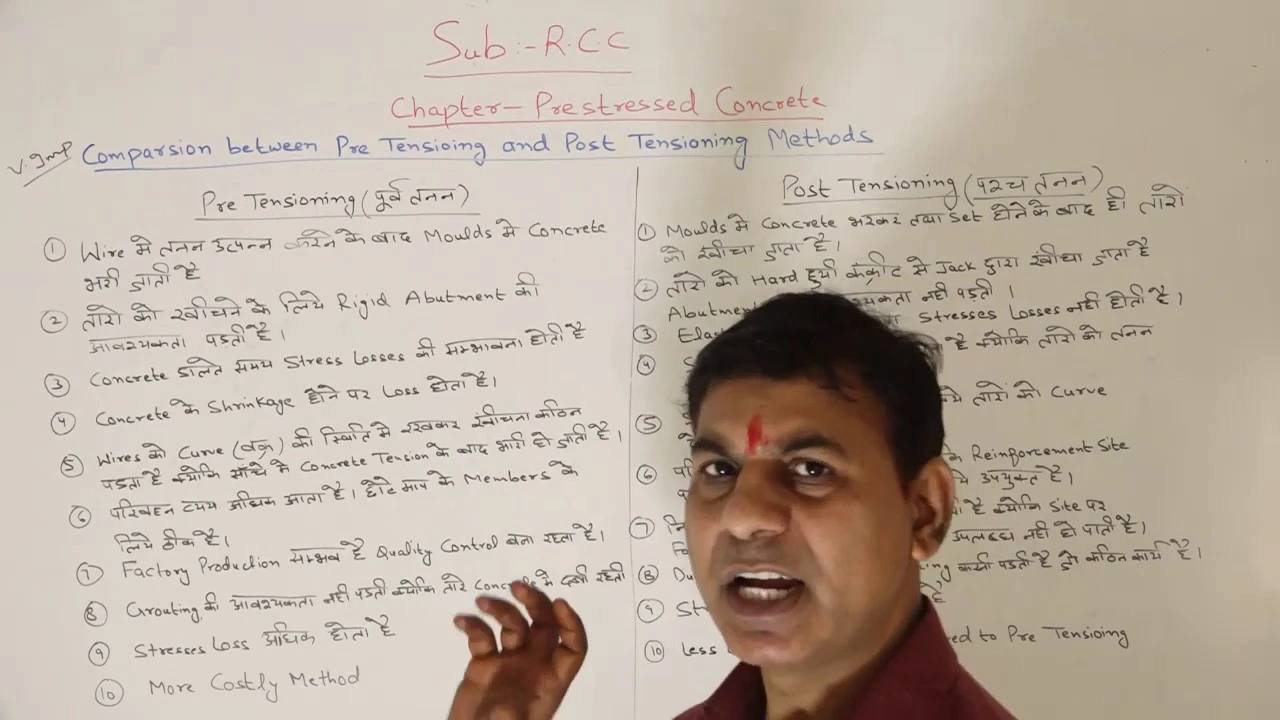 Sub:- R.C.C
Chapter- Prestressed Concrete
V.Imp Comparsion between Pre Tensioing and Post Tensioning Methods
Pre Tensioning (पूर्व तनन)
① Wire मे तनन उत्पन्न करने के बाद Moulds मे Concrete
भरी जाती है
② तारो को खीचने के लिये Rigid Abutment की
आवश्यकता पड़ती है।
③ Concrete डालते समय Stress Losses की सम्भावना होती है
④ Concrete के Shrinkage होने पर Loss होता है।
⑤ Wires को Curve (वक्र) की स्थिति मे रखकर खीचना कठिन
पड़ता है क्योकि साँचे मे Concrete Tension के बाद भरी हो जाती है।
⑥ परिवहन व्यय अधिक आता है। छोटे माप के Members के
लिये ठीक है।
⑦ Factory Production सम्भव है Quality Control बना रहता है।
⑧ Grouting की आवश्यकता नही पड़ती क्योकि तारे Concrete मे रहती
⑨ Stresses Loss अधिक होता है
⑩ More Costly Method
Post Tensioning (पश्च तनन)
① Moulds मे Concrete भरकर तथा Set होने के बाद ही तारो
को खीचा जाता है।
② तारो को Hard हुयी कंक्रीट से Jack द्वारा खीचा जाता है
नही पड़ती।
③ Stresses Losses नही होती है।
④ है क्योकि तारो को तनन
⑤ तारो को Curve
⑥ Reinforcement Site
उपयुक्त है।
⑦ है क्योकि Site पर
उपलब्ध नही हो पाती है।
⑧ करनी पड़ती है जो कठिन कार्य है।
⑨ है
⑩ Less to Pre Tensioing